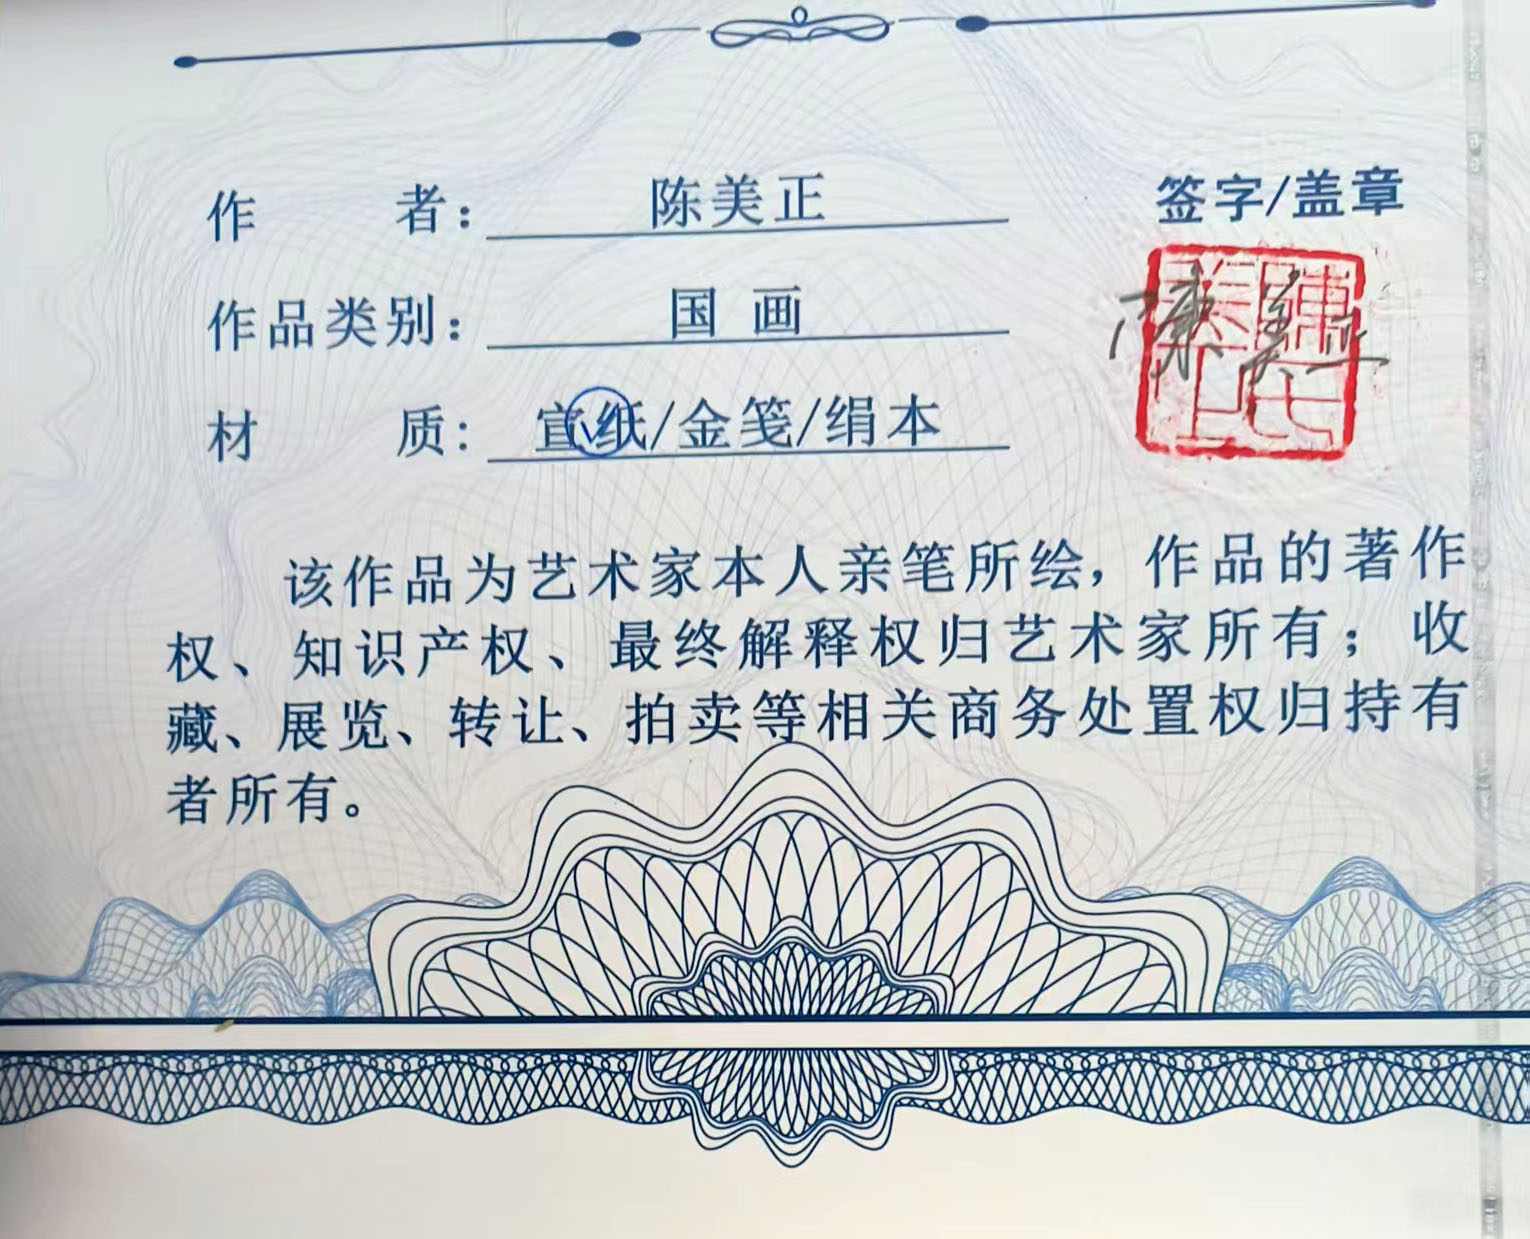 作 者：陈美正
签字/盖章
作品类别：国 画
陈美正
材 质：宣纸/金笺/绢本
该作品为艺术家本人亲笔所绘，作品的著作
权、知识产权、最终解释权归艺术家所有；收
藏、展览、转让、拍卖等相关商务处置权归持有
者所有。